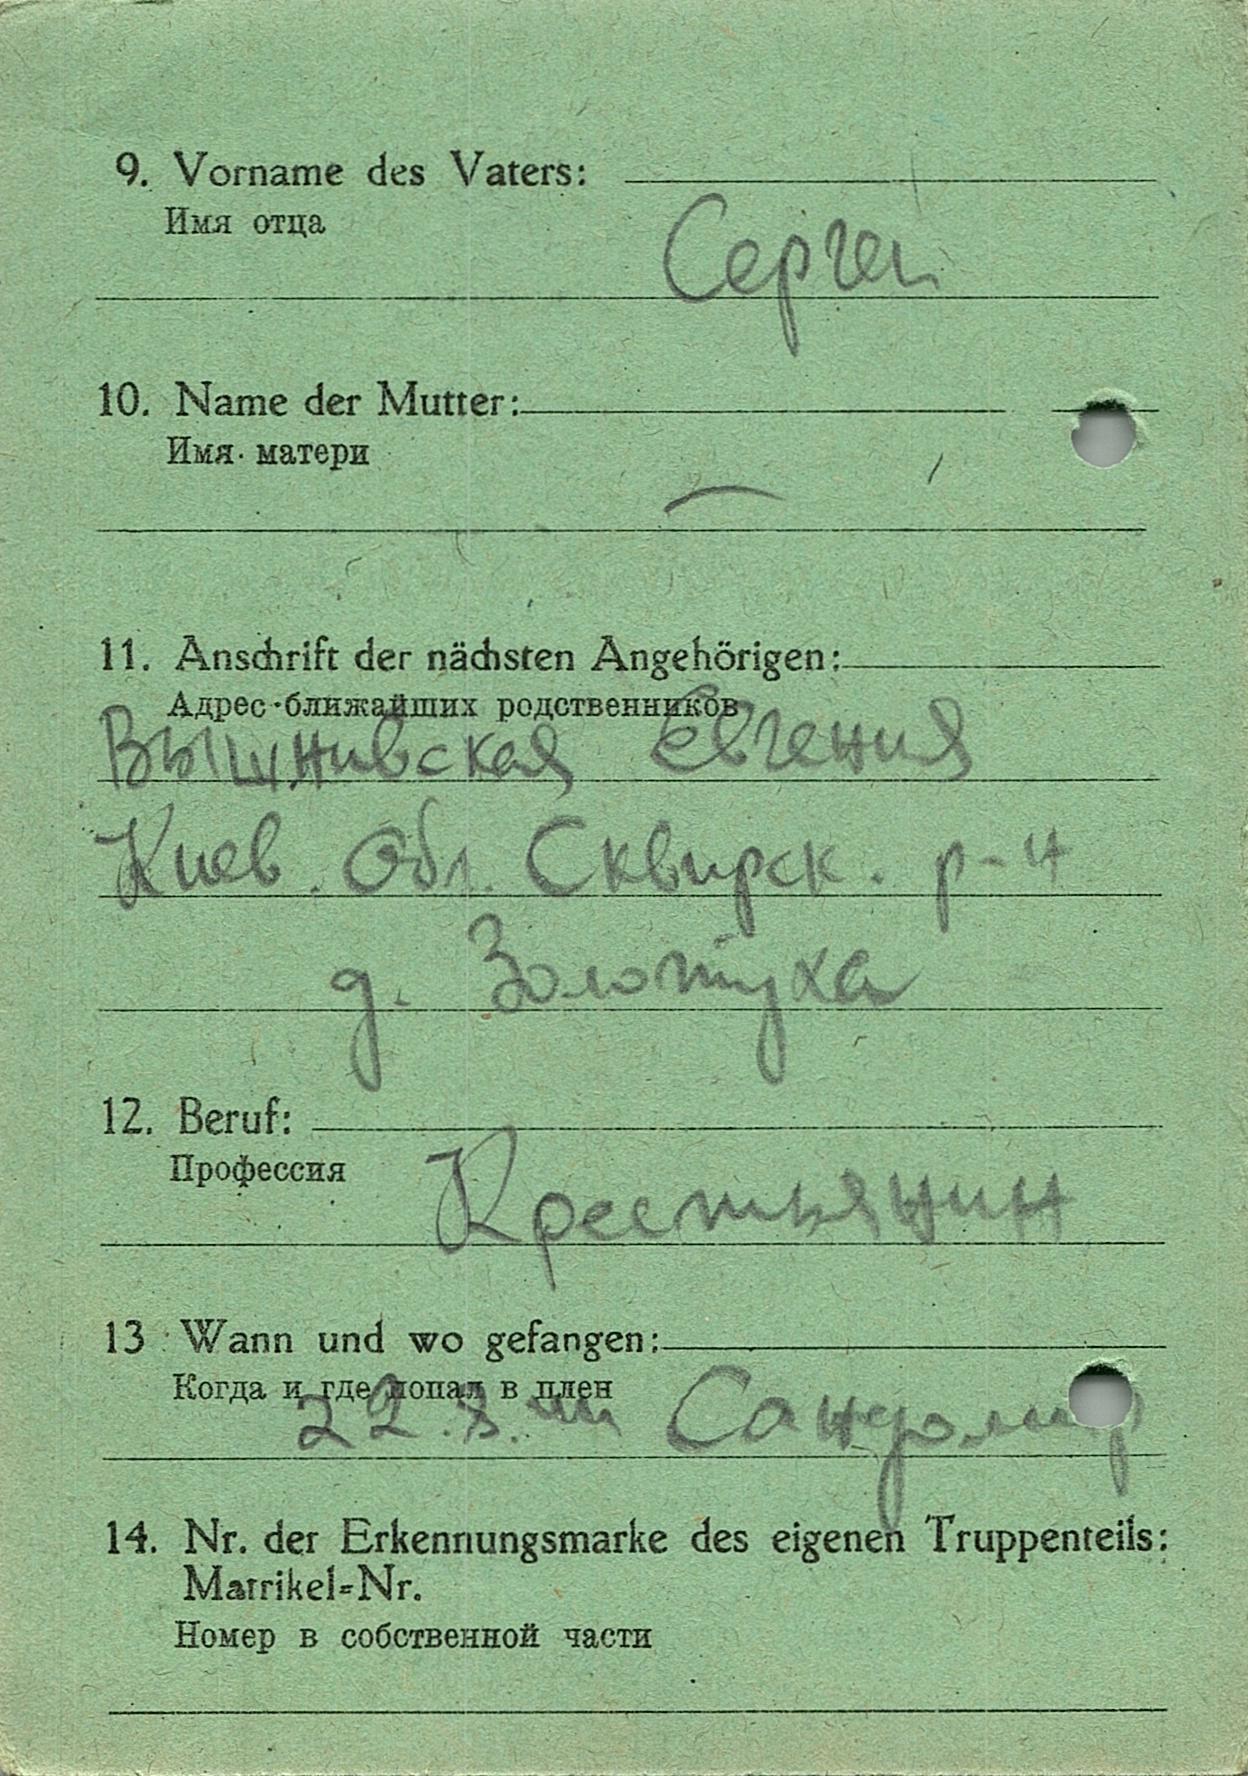 9. Vorname des Vaters:
Имя отца
Сергей
10. Name der Mutter:
Имя матери
—
11. Anschrift der nächsten Angehörigen:
Адрес ближайших родственников
Вышнивская Евгения
Киев. Обл. Сквирск. р-н
д. Золотуха
12. Beruf:
Профессия
Крестьянин
13 Wann und wo gefangen:
Когда и где попал в плен
22.8. Сандомир
14. Nr. der Erkennungsmarke des eigenen Truppenteils:
Matrikel-Nr.
Номер в собственной части